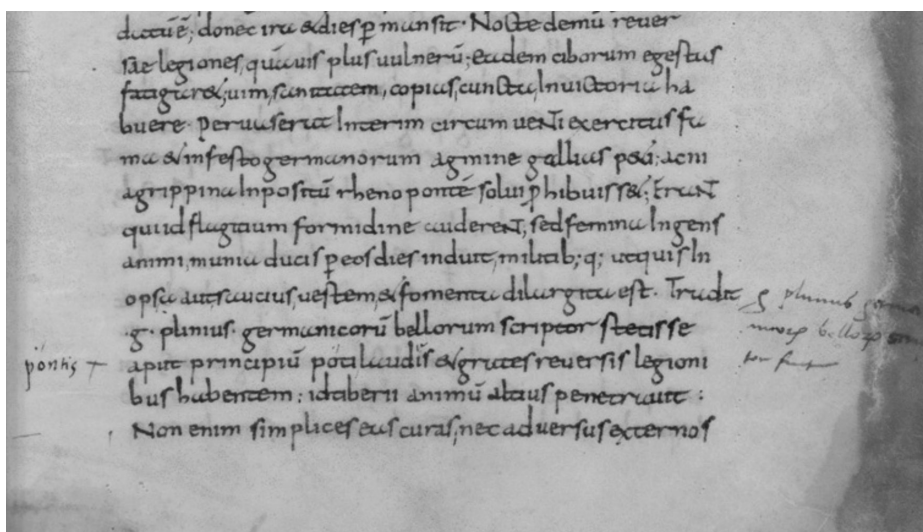 ductūē; donec ira & dies p̄mansit. Nocte demū rever
sae legiones, quāuis plus uulnerū; eadem ciborum egestas
fatigar&; uim, sanitatem, copias, cuncta, In uictoria ha
buere. Peruaserat Interim circum ueNti exercitus fa
ma & infesto germanorum agmine gallias p&i; acni
agrippina Inpositū rheno pontē solui p̄hibuiss&; eraNT
qui id flagitium formidine audereNT; sed femina Ingens
animi, munia ducis p̄ eos dies induit, militib; q; ut quis In
ops aut saucius, uestem, & fomenta dilargita est. Tradit
.g. plinius. germanicorū bellorum scriptor stetisse
aput principiū poti laudis & grates reversis legioni
bus habentem; id tiberii animū altius penetrauit;
Non enim simplices eas curas, nec adversus externos
g plinius
pontis +